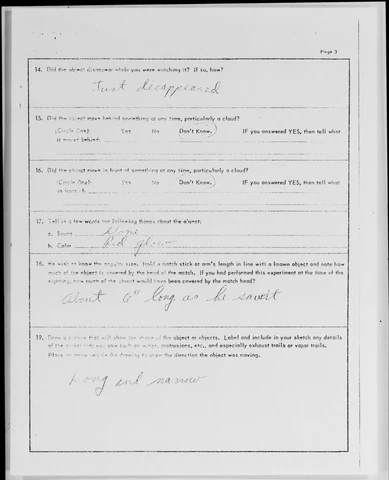 Page 3
14. Did the object disappear while you were watching it? If so, how?
Just disappeared
15. Did the object move behind something at any time, particularly a cloud?
(Circle One) Yes No Don't Know. IF you answered YES, then tell what
it moved behind:
16. Did the object move in front of something at any time, particularly a cloud?
(Circle One) Yes No Don't Know. IF you answered YES, then tell what
it
17. Tell in a few words the following things about the object:
a. Sound None
b. Color Red glow
18. We wish to know the angular size. Hold a match stick at arm's length in line with a known object and note how
much of the object is covered by the head of the match. If you had performed this experiment at the time of the
sighting, how much of the object would have been covered by the match head?
About 6" long as he saw it
19. Draw a picture that will show the shape of the object or objects. Label and include in your sketch any details
of the object that you saw such as wings, protrusions, etc., and especially exhaust trails or vapor trails.
Place an arrow beside the drawing to show the direction the object was moving.
Long and narrow